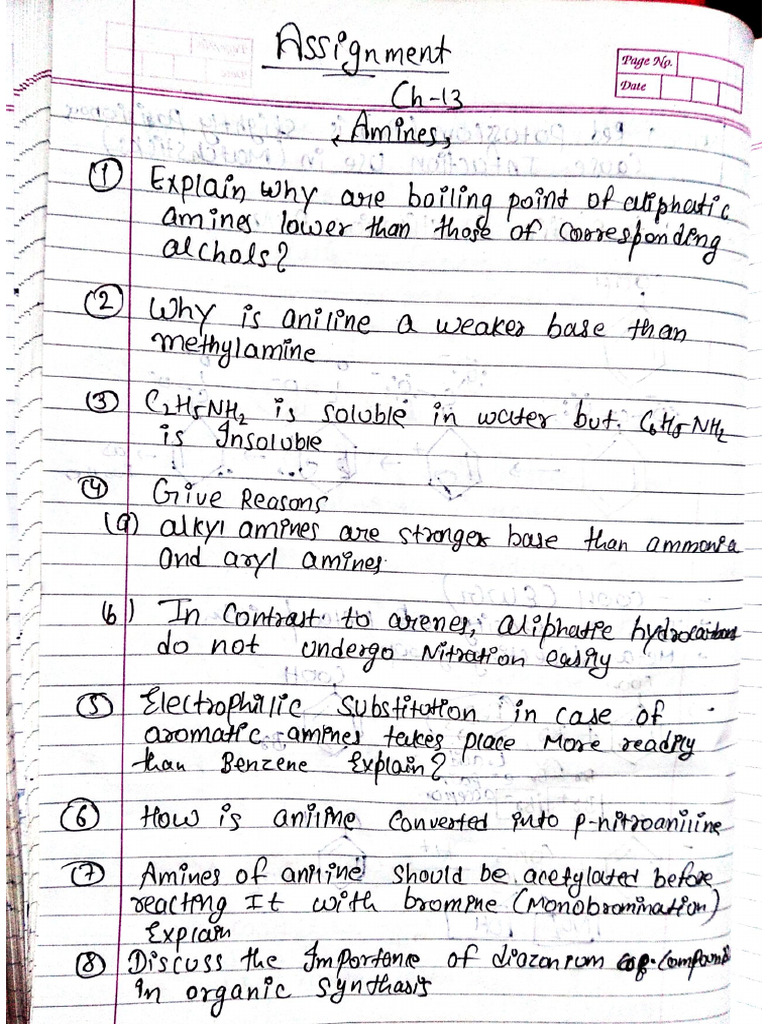 Assignment
Page No.
Date
Ch-13
Amines,
(1) Explain why are boiling point of aliphatic
amines lower than those of corresponding
alchols?
(2) Why is aniline a weaker base than
methylamine
(3) C2H5NH2 is soluble in water but C6H5NH2
is Insoluble
(4) Give Reasons
(a) alkyl amines are stronger base than ammonia
and aryl amines
(b) In contrast to arenes, aliphatic hydrocarbons
do not undergo Nitration easily
(5) Electrophillic substitution in case of
aromatic amines takes place More readily
than Benzene Explain?
(6) How is aniline converted into p-nitroaniline
(7) Amines of aniline should be acetylated before
reacting It with bromine (Monobromination)
Explain
(8) Discuss the Importance of diazonium compound
in organic synthasis